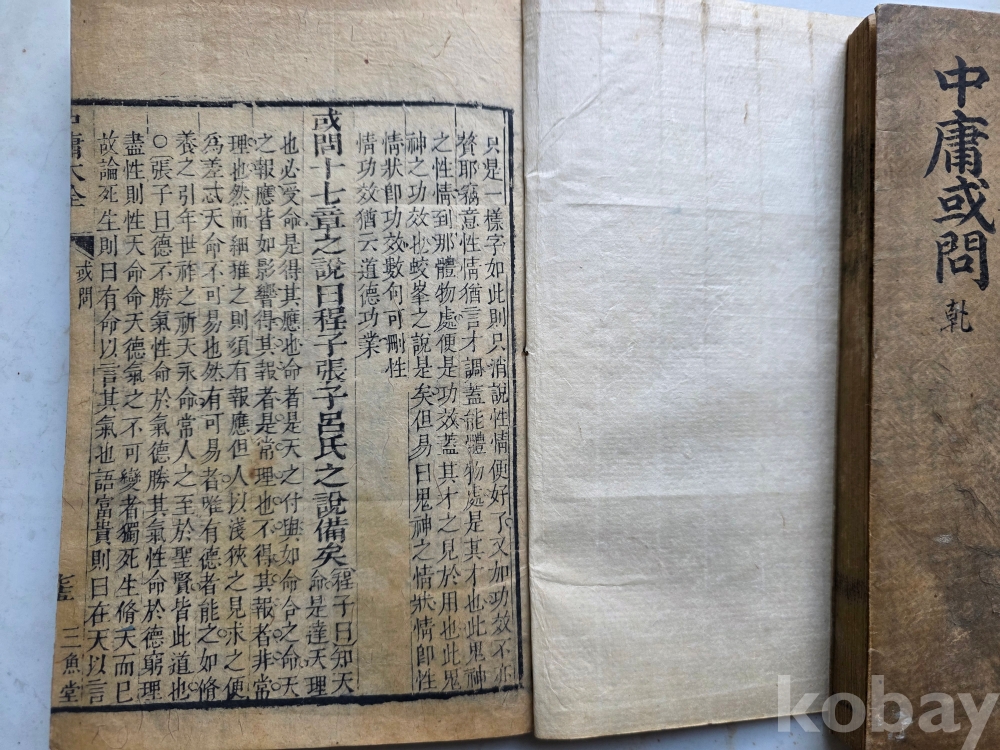 中庸或問
乾
只是一樣字如此則只消說性情便好了又加功效不亦
贅耶竊意性情猶言才調蓋能體物處是其才也此鬼神
之性情到那體物處便是功效蓋其才之見於用也此鬼
神之功效也蛟峯之說是矣但易曰鬼神之情狀情即性
情狀卽功效數何可刪性
情功效猶云道德功業
或問十七章之說曰程子張子呂氏之說備矣
程子曰知天
命是達天理
也必受命是得其應也命者是天之付與如命令之命天
之報應皆如影響得其報者是常理也不得其報者非常
理也然而細推之則須有報應但人以淺狹之見求之便
爲差忒天命不可易也然有可易者唯有德者能之如脩
養之引年世祚之祈天永命常人之至於聖賢皆此道也
○張子曰德不勝氣性命於氣德勝其氣性命於德窮理
盡性則性天命命天德氣之不可變者獨死生脩夭而已
故論死生則曰有命以言其氣也語富貴則曰在天以言
中庸大全
或問
三魚堂
kobay